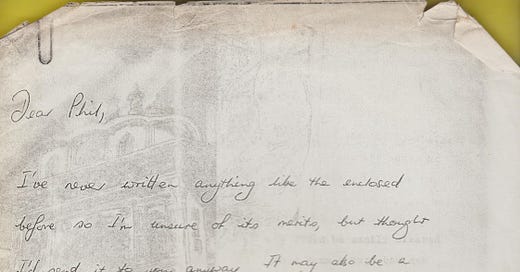 Dear Phil,
I've never written anything like the enclosed
before so I'm unsure of its merits, but thought
I'd send it to you anyway. It may also be a